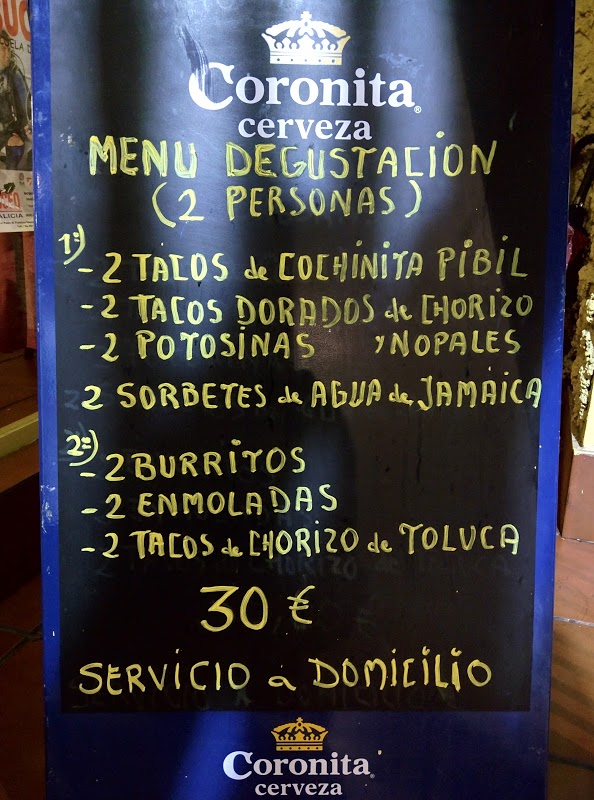 Coronita
cerveza
MENU DEGUSTACION
(2 PERSONAS)
1º)
- 2 TACOS de COCHINITA PIBIL
- 2 TACOS DORADOS de CHORIZO
- 2 POTOSINAS Y NOPALES
2 SORBETES de AGUA de JAMAICA
2º)
- 2 BURRITOS
- 2 ENMOLADAS
- 2 TACOS de CHORIZO de TOLUCA
30 €
SERVICIO a DOMICILIO
Coronita
cerveza